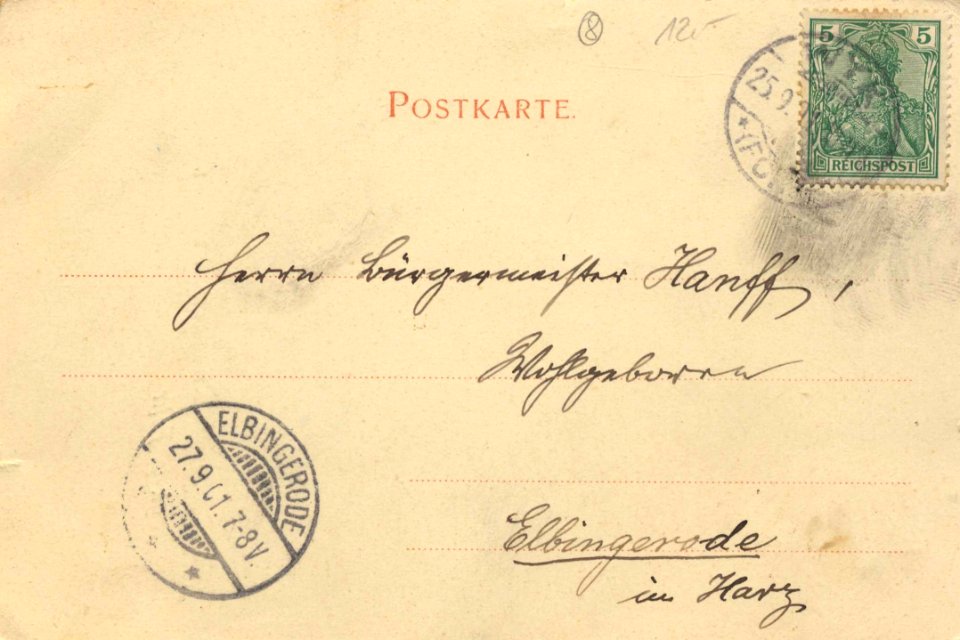 8 12.-
5 5
REICHSPOST
25.9.
POSTKARTE.
Herrn Bürgermeister Hanff,
Wohlgeboren
ELBINGERODE
27.9.01. 7-8V.
Elbingerode
im Harz